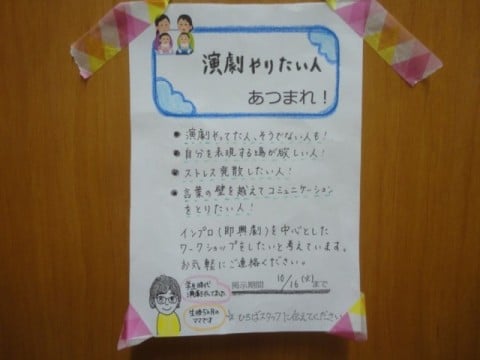 演劇やりたい人
あつまれ！
演劇やってた人、そうでない人も！
自分を表現する場が欲しい人！
ストレス発散したい人！
言葉の壁を越えてコミュニケーション
をとりたい人！
インプロ(即興劇)を中心とした
ワークショップをしたいと考えています。
お気軽にご連絡ください。
掲示期間 10/16(火)まで
学生時代
演劇やってました
生後5ヵ月の
ママです
☆ひろばスタッフに伝えてください